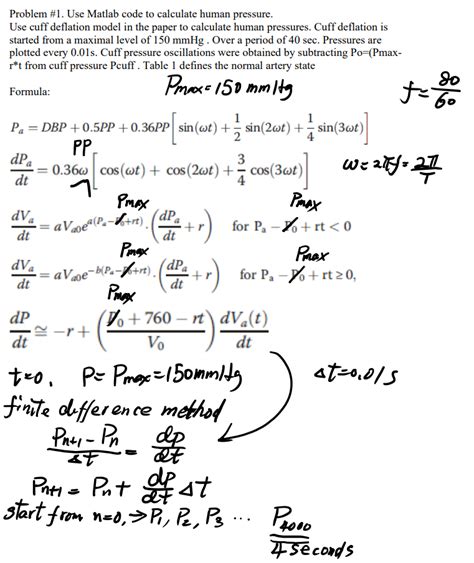 Problem #1. Use Matlab code to calculate human pressure.
Use cuff deflation model in the paper to calculate human pressures. Cuff deflation is
started from a maximal level of 150 mmHg . Over a period of 40 sec. Pressures are
plotted every 0.01s. Cuff pressure oscillations were obtained by subtracting Po=(Pmax-
r*t from cuff pressure Pcuff . Table 1 defines the normal artery state
Formula:
Pmax=150 mmHg
f= 80/60
P_a = DBP + 0.5PP + 0.36PP [ sin(ωt) + 1/2 sin(2ωt) + 1/4 sin(3ωt) ]
PP
dP_a/dt = 0.36ω [ cos(ωt) + cos(2ωt) + 3/4 cos(3ωt) ]
ω=2πf= 2π/T
Pmax
Pmax
dV_a/dt = aV_a0 e^{a(P_a−P_0+rt)} · ( dP_a/dt + r ) for P_a − P_0 + rt < 0
Pmax
Pmax
dV_a/dt = aV_a0 e^{−b(P_a−P_0+rt)} · ( dP_a/dt + r ) for P_a − P_0 + rt ≥ 0,
Pmax
dP/dt ≅ −r + ( (P_0 + 760 − rt)/V_0 ) dV_a(t)/dt
t=0, P= Pmax=150mmHg
Δt=0.01s
finite difference method
(P_{n+1} - P_n)/Δt = dp/dt
P_{n+1} = P_n + dp/dt Δt
start from n=0, → P_1, P_2, P_3 ... P_4000
4 seconds